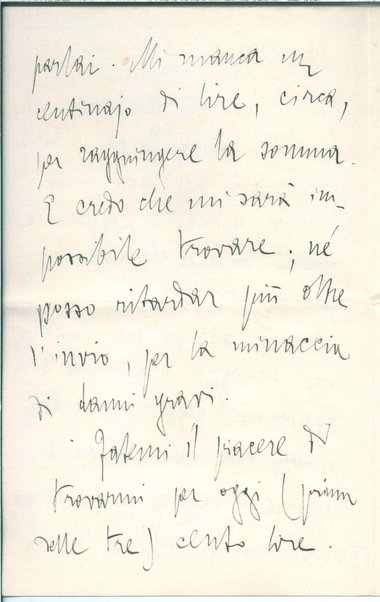 parlai. Mi manca un
centinajo di lire, circa,
per raggiungere la somma.
E credo che mi sarà im-
possibile trovare; né
posso ritardar più oltre
l'invio, per la minaccia
di danni gravi.
Fatemi il piacere di
trovarmi per oggi (prima
delle tre) cento lire.